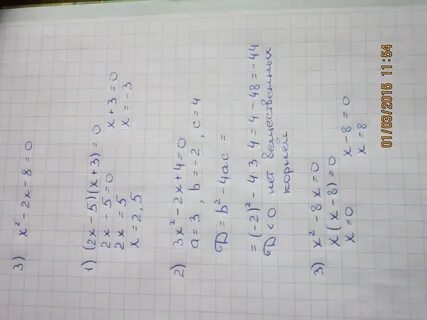 3) x² - 2x - 8 = 0
1) (2x - 5)(x + 3) = 0
2x - 5 = 0 x + 3 = 0
2x = 5 x = -3
x = 2,5
2) 3x² - 2x + 4 = 0
a = 3, b = -2, c = 4
D = b² - 4ac =
= (-2)² - 4 3 4 = 4 - 48 = -44
D < 0 нет вещественных
корней
3) x² - 8x = 0
x(x - 8) = 0
x = 0 x - 8 = 0
x = 8
01/03/2015 11:54